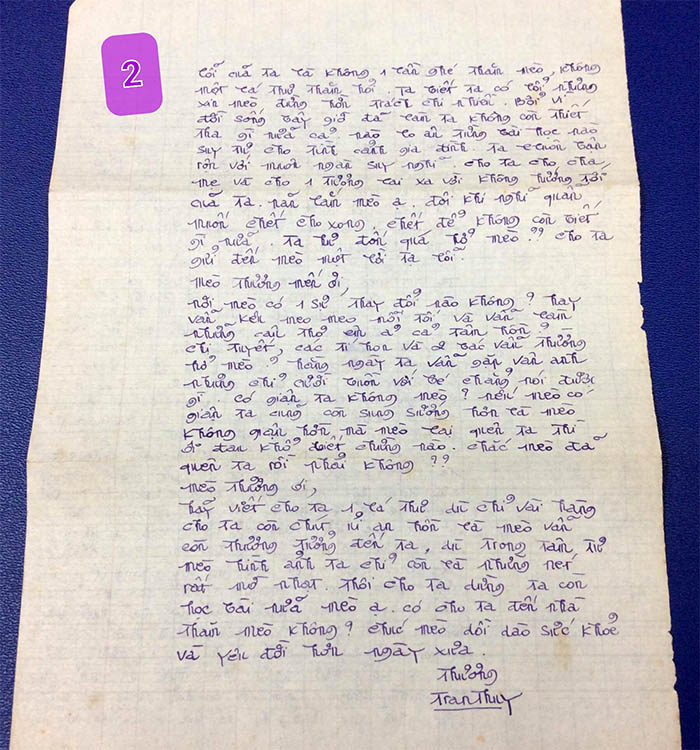 2
lỗi của ta là không 1 lần ghé thăm mèo, không
một lá thư thăm hỏi. Ta biết ta có lỗi nhưng
xin mèo đừng hờn trách chi nhiều. Bởi vì
đời sống bây giờ đã làm ta không còn thiết
tha gì nữa cả. nào lo ăn từng bài học nào
suy tư cho tình cảnh gia đình. Ta luôn bận
rộn với muôn ngàn suy nghĩ. cho ta cho cha,
mẹ và cho 1 tương lai xa vời không hướng tới
của ta. nản lắm mèo ạ. đôi khi nghĩ quẩn
muốn chết cho xong. chết để không còn biết
gì nữa. Ta hư đốn quá hở mèo?? cho ta
gửi đến mèo một lời tạ lỗi.
mèo thương mến ơi,
nơi mèo có 1 sự thay đổi nào không? hay
vẫn kêu meo meo mỗi tối và vẫn làm
những câu thơ em ả cả tâm hồn?
chị Tuyết, các tí hon và 2 bác vẫn thường
hở mèo? hằng ngày ta vẫn gặp vân anh
nhưng chỉ cười buồn với bé chẳng nói được
gì. có giận ta không mèo? nếu mèo có
giận ta cũng còn sung sướng hơn là mèo
không giận hờn mà mèo lại quên ta thì
ôi đau khổ biết chừng nào. chắc mèo đã
quên ta rồi phải không??
mèo thương ơi,
hãy viết cho ta 1 lá thư dù chỉ vài hàng
cho ta còn chút lí an hồn là mèo vẫn
còn thương tưởng đến ta, dù trong tâm tư
mèo hình ảnh ta chỉ còn là những nét
rất mờ nhạt. Thôi cho ta dừng ta còn
học bài nữa mèo ạ. có cho ta đến nhà
thăm mèo không? chúc mèo dồi dào sức khoẻ
và yêu đời hơn ngày xưa.
Thương
TranThuy